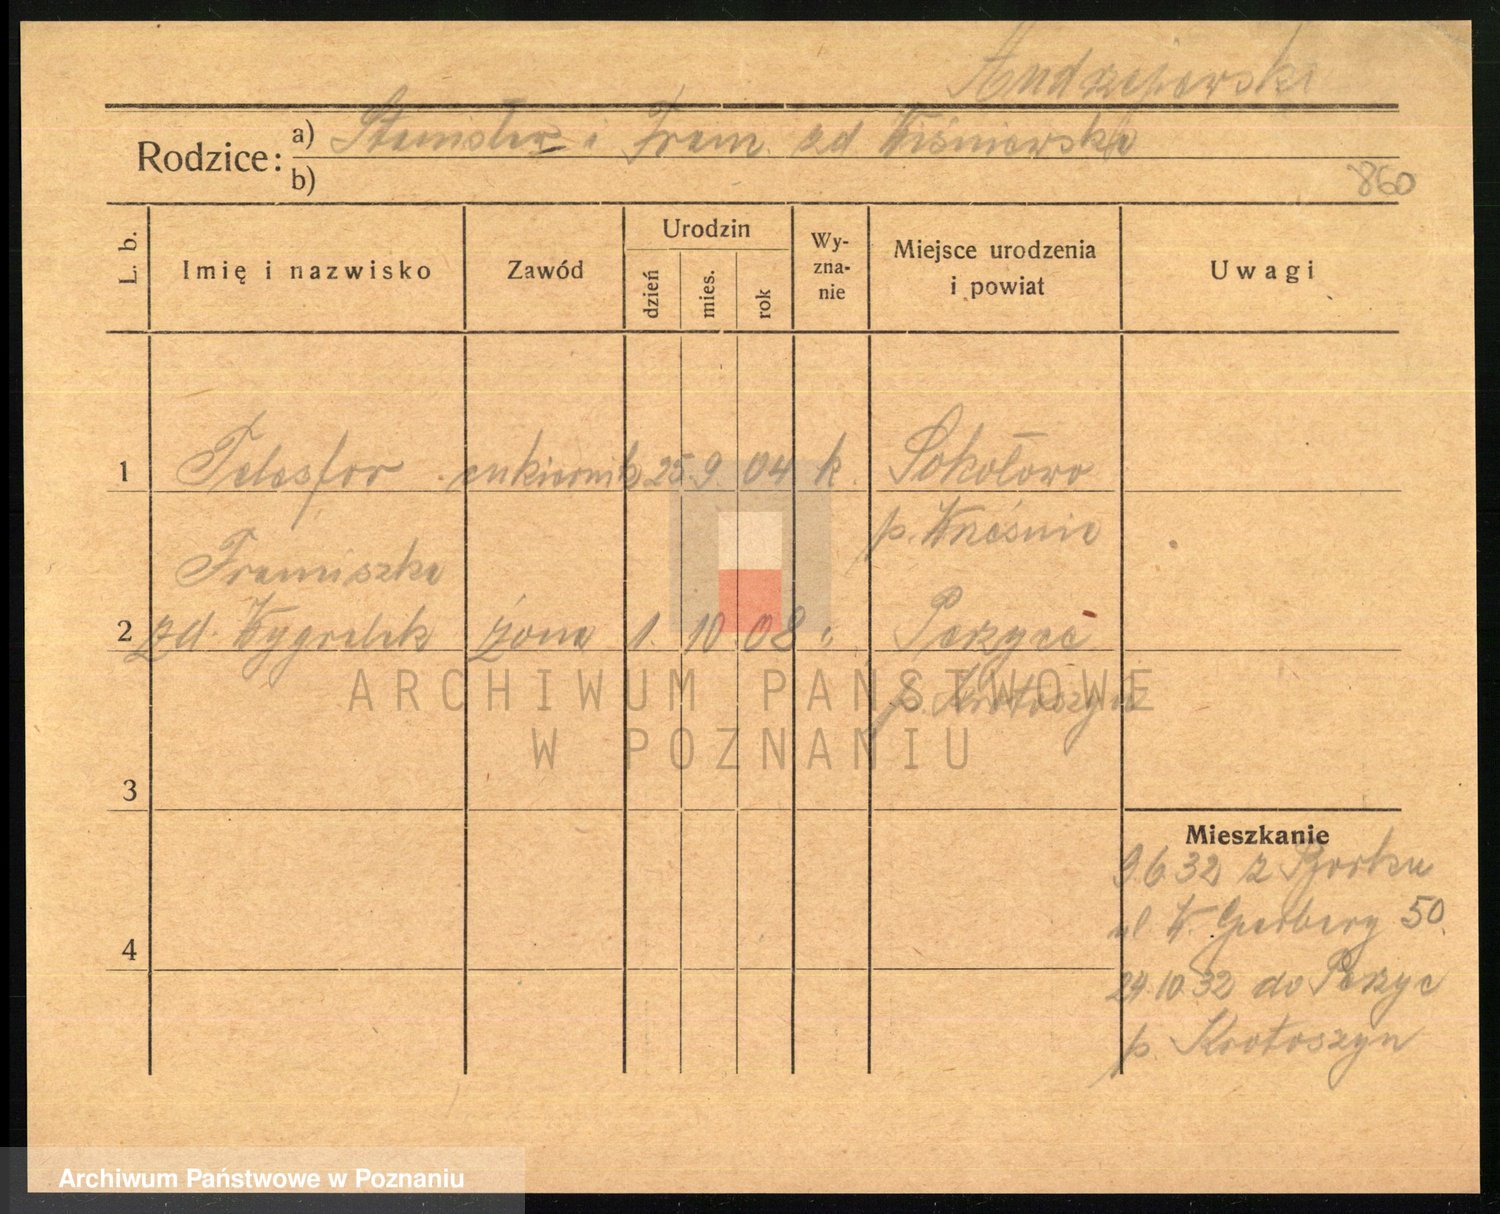 Andrzejewski
Rodzice: a) Stanisław i Fran. zd Wiśniewska
b)
860
L. b.
Imię i nazwisko
Zawód
Urodzin
dzień
mies.
rok
Wy-
zna-
nie
Miejsce urodzenia
i powiat
Uwagi
1 Telesfor cukiernik 25. 9. 04 k. Sokołowo
p. Września
Franciszka
2 zd. Wygralak żona 1. 10 08 " Perzyce
p. Krotoszyn
3
4
Mieszkanie
9.6.32 z Borku
ul. W. Garbary 50.
24.10.32 do Perzyc
p. Krotoszyn
ARCHIWUM PAŃSTWOWE
W POZNANIU
Archiwum Państwowe w Poznaniu